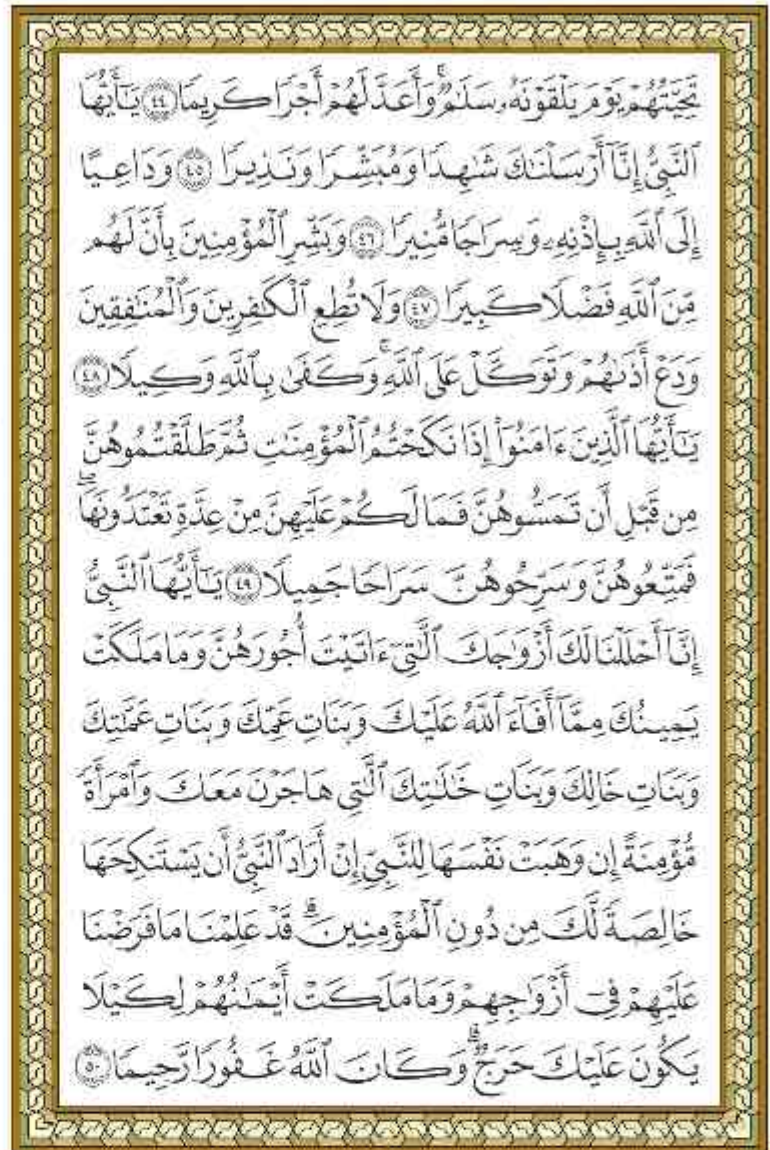 تَحِيَّتُهُمْ يَوْمَ يَلْقَوْنَهُۥ سَلَٰمٌ ۚ وَأَعَدَّ لَهُمْ أَجْرًا كَرِيمًا ٤٤ يَٰٓأَيُّهَا
ٱلنَّبِىُّ إِنَّآ أَرْسَلْنَٰكَ شَٰهِدًا وَمُبَشِّرًا وَنَذِيرًا ٤٥ وَدَاعِيًا
إِلَى ٱللَّهِ بِإِذْنِهِۦ وَسِرَاجًا مُّنِيرًا ٤٦ وَبَشِّرِ ٱلْمُؤْمِنِينَ بِأَنَّ لَهُم
مِّنَ ٱللَّهِ فَضْلًا كَبِيرًا ٤٧ وَلَا تُطِعِ ٱلْكَٰفِرِينَ وَٱلْمُنَٰفِقِينَ
وَدَعْ أَذَىٰهُمْ وَتَوَكَّلْ عَلَى ٱللَّهِ ۚ وَكَفَىٰ بِٱللَّهِ وَكِيلًا ٤٨
يَٰٓأَيُّهَا ٱلَّذِينَ ءَامَنُوٓا۟ إِذَا نَكَحْتُمُ ٱلْمُؤْمِنَٰتِ ثُمَّ طَلَّقْتُمُوهُنَّ
مِن قَبْلِ أَن تَمَسُّوهُنَّ فَمَا لَكُمْ عَلَيْهِنَّ مِنْ عِدَّةٍ تَعْتَدُّونَهَا ۖ
فَمَتِّعُوهُنَّ وَسَرِّحُوهُنَّ سَرَاحًا جَمِيلًا ٤٩ يَٰٓأَيُّهَا ٱلنَّبِىُّ
إِنَّآ أَحْلَلْنَا لَكَ أَزْوَٰجَكَ ٱلَّٰتِىٓ ءَاتَيْتَ أُجُورَهُنَّ وَمَا مَلَكَتْ
يَمِينُكَ مِمَّآ أَفَآءَ ٱللَّهُ عَلَيْكَ وَبَنَاتِ عَمِّكَ وَبَنَاتِ عَمَّٰتِكَ
وَبَنَاتِ خَالِكَ وَبَنَاتِ خَٰلَٰتِكَ ٱلَّٰتِى هَاجَرْنَ مَعَكَ وَٱمْرَأَةً
مُّؤْمِنَةً إِن وَهَبَتْ نَفْسَهَا لِلنَّبِىِّ إِنْ أَرَادَ ٱلنَّبِىُّ أَن يَسْتَنكِحَهَا
خَالِصَةً لَّكَ مِن دُونِ ٱلْمُؤْمِنِينَ ۗ قَدْ عَلِمْنَا مَا فَرَضْنَا
عَلَيْهِمْ فِىٓ أَزْوَٰجِهِمْ وَمَا مَلَكَتْ أَيْمَٰنُهُمْ لِكَيْلَا
يَكُونَ عَلَيْكَ حَرَجٌ ۗ وَكَانَ ٱللَّهُ غَفُورًا رَّحِيمًا ٥٠